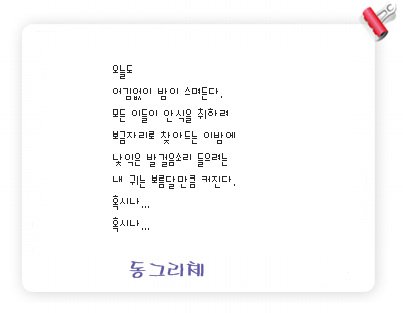 오늘도
어김없이 밤이 스며든다.
모든 이들이 안식을 취하려
보금자리로 찾아드는 이밤에
낯익은 발걸음소리 들으려는
내 귀는 보름달만큼 커진다.
혹시나...
혹시나...
동그리체